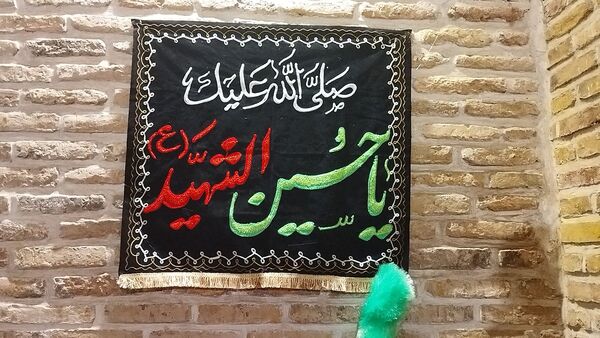 صَلَّی اللهُ عَلَیْكَ
یا حُسَین الشَّهید (ع)